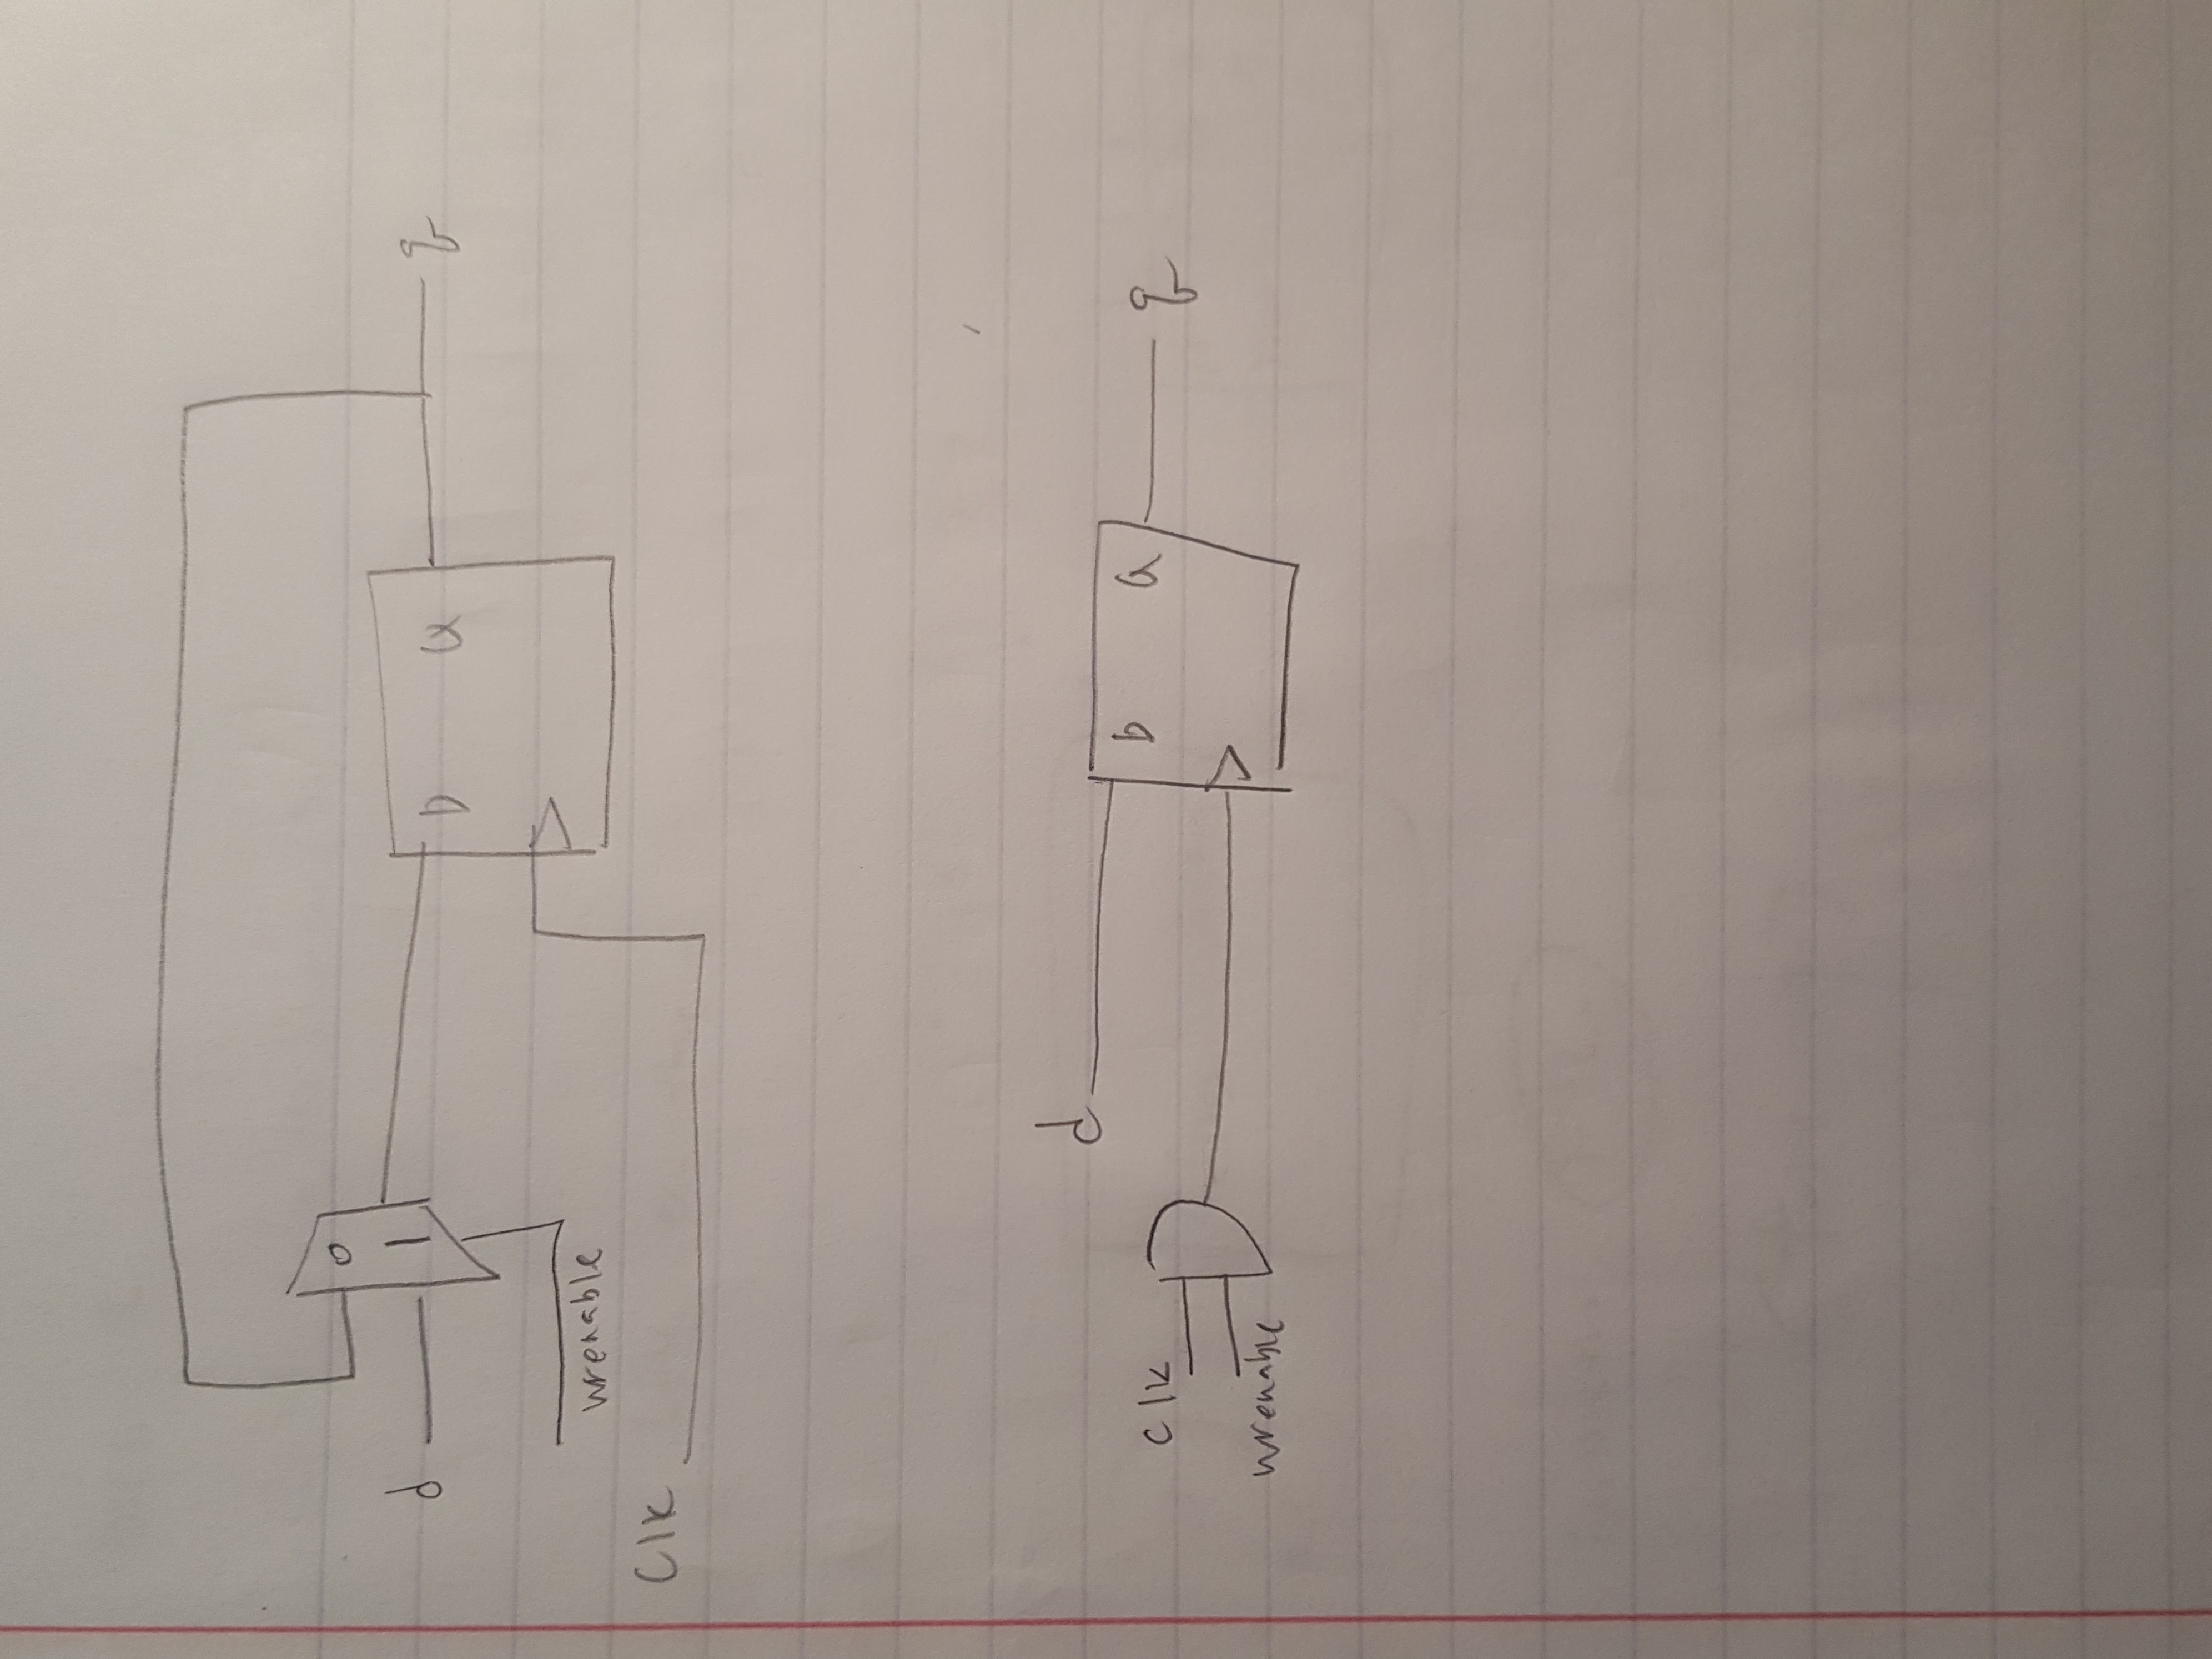 0
d 1 D Q q
wrenable
Clk
d
D Q q
clk
wrenable